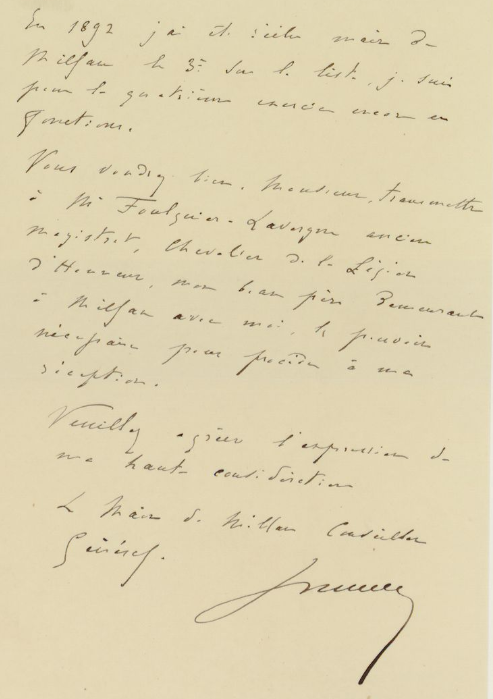 En 1892 j'ai été réélu maire de
Milhau le 3e sur la liste, je suis
pour la quatrième encore en
fonctions.
Vous voudrez bien, Monsieur, transmettre
à Mr Foulquier-Lavergne ancien
magistrat, Chevalier de la Légion
d'Honneur, mon beau père Demeurant
à Milhau avec moi, le pouvoir
nécessaire pour procéder à ma
réception.
Veuillez agréer l'expression de
ma haute considération
Le Maire de Millau Conseiller
Général.